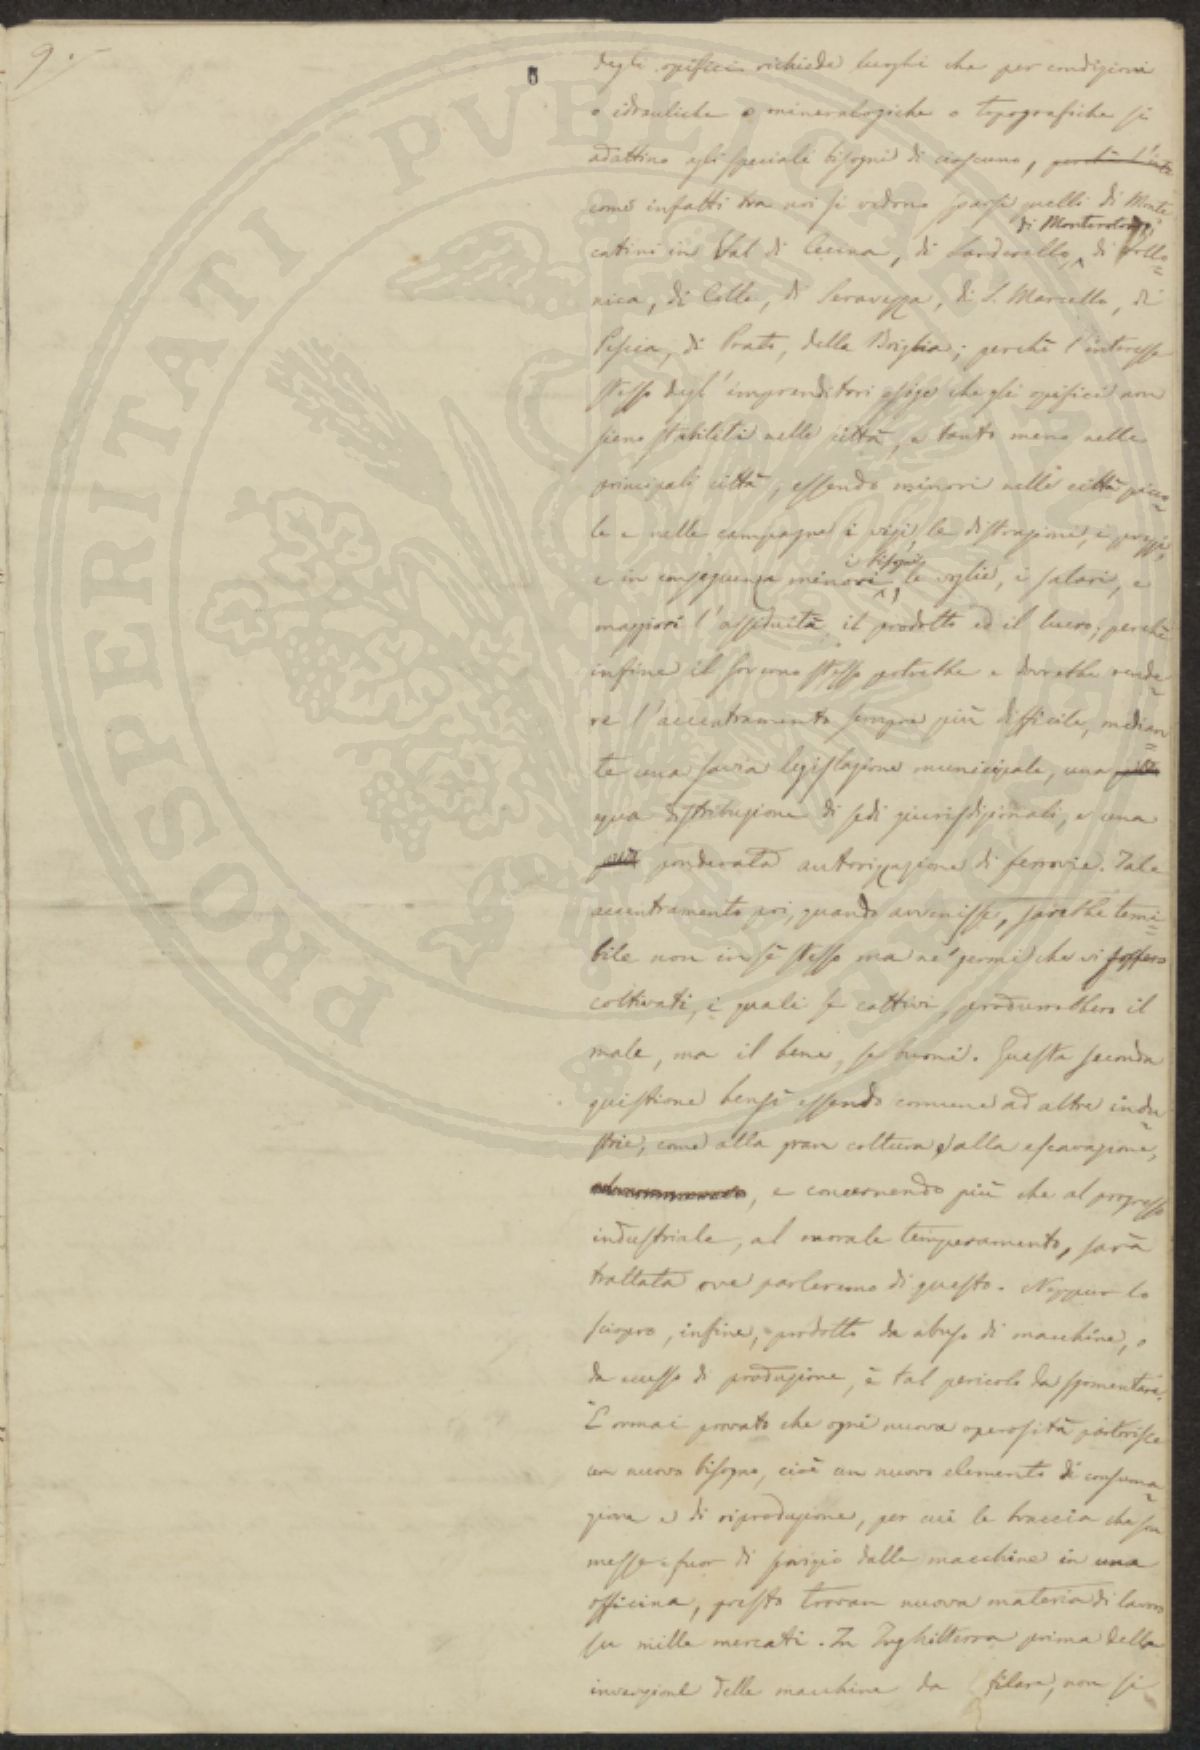 9.
degli opifici richiede luoghi che per condizioni
o idrauliche o mineralogiche o topografiche si
adattino agli speciali bisogni di ciascuno,
come infatti tra noi si vedono sparsi quelli di Monte
di Monterotondo,
catini in Val di Cecina, di Larderello, di Follo=
nica, di Colle, di Seravezza, di S. Marcello, di
Pescia, di Prato, della Briglia; perchè l'interesse
stesso degl'imprenditori esige che gli opifici non
sieno stabiliti nelle città, e tanto meno nelle
principali città, essendo minori nelle città picco=
le e nelle campagne i vizi, le distrazioni, i prezzi,
i bisogni,
e in conseguenza minori le voglie, i salari, e
maggiori l'assiduità, il prodotto ed il lucro; perchè
infine il Governo stesso potrebbe e dovrebbe rende=
re l'accentramento sempre più difficile, median=
te una savia legislazione municipale, una più
equa distribuzione di sedi giurisdizionali, e una
più ponderata autorizzazione di ferrovie. Tale
accentramento poi, quando avvenisse, sarebbe temi=
bile non in sè stesso ma ne' germi che vi fossero
coltivati, i quali se cattivi, produrrebbero il
male, ma il bene, se buoni. Questa seconda
quistione bensì essendo comune ad altre indu=
strie, come alla gran coltura, alla escavazione,
, e concernendo più che al progresso
industriale, al morale temperamento, sarà
trattata ove parleremo di questo. Neppur lo
sciopro, infine, prodotto da abuso di macchine, o
da eccesso di produzione, è tal pericolo da sgomentare.
È ormai provato che ogni nuova operosità partorisce
un nuovo bisogno, cioè un nuovo elemento di consuma=
zione e di riproduzione, per cui le braccia che son
messe fuor di servizio dalle macchine in una
officina, presto trovan nuova materia di lavoro
su mille mercati. In Inghilterra prima della
invenzione delle macchine da filare, non si